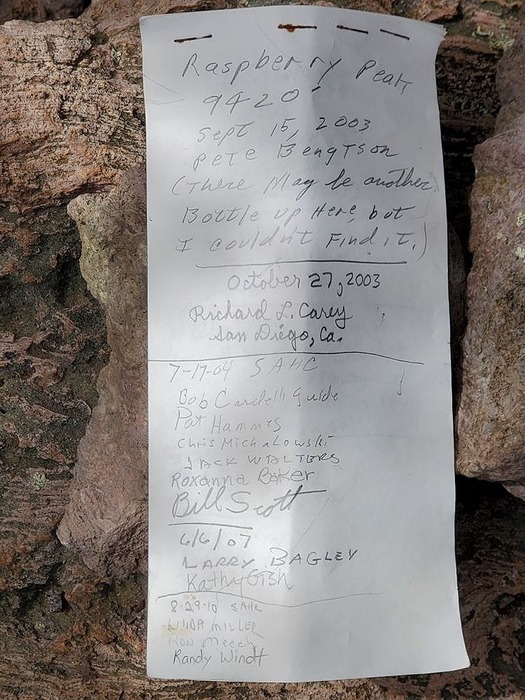 Raspberry Peak
9420'
Sept 15, 2003
Pete Bengtson
(There May be another
Bottle up Here, but
I couldn't Find it.)
October 27, 2003
Richard L. Carey
San Diego, Ca.
7-17-04 SAHC
Bob Cardell Guide
Pat Hammes
Chris Michalowski
JACK WALTERS
Roxanna Baker
Bill Scott
6/6/07
LARRY BAGLEY
Kathy Gish
8-29-10 SAHC
LINDA MILLER
Ron Meech
Randy Windt